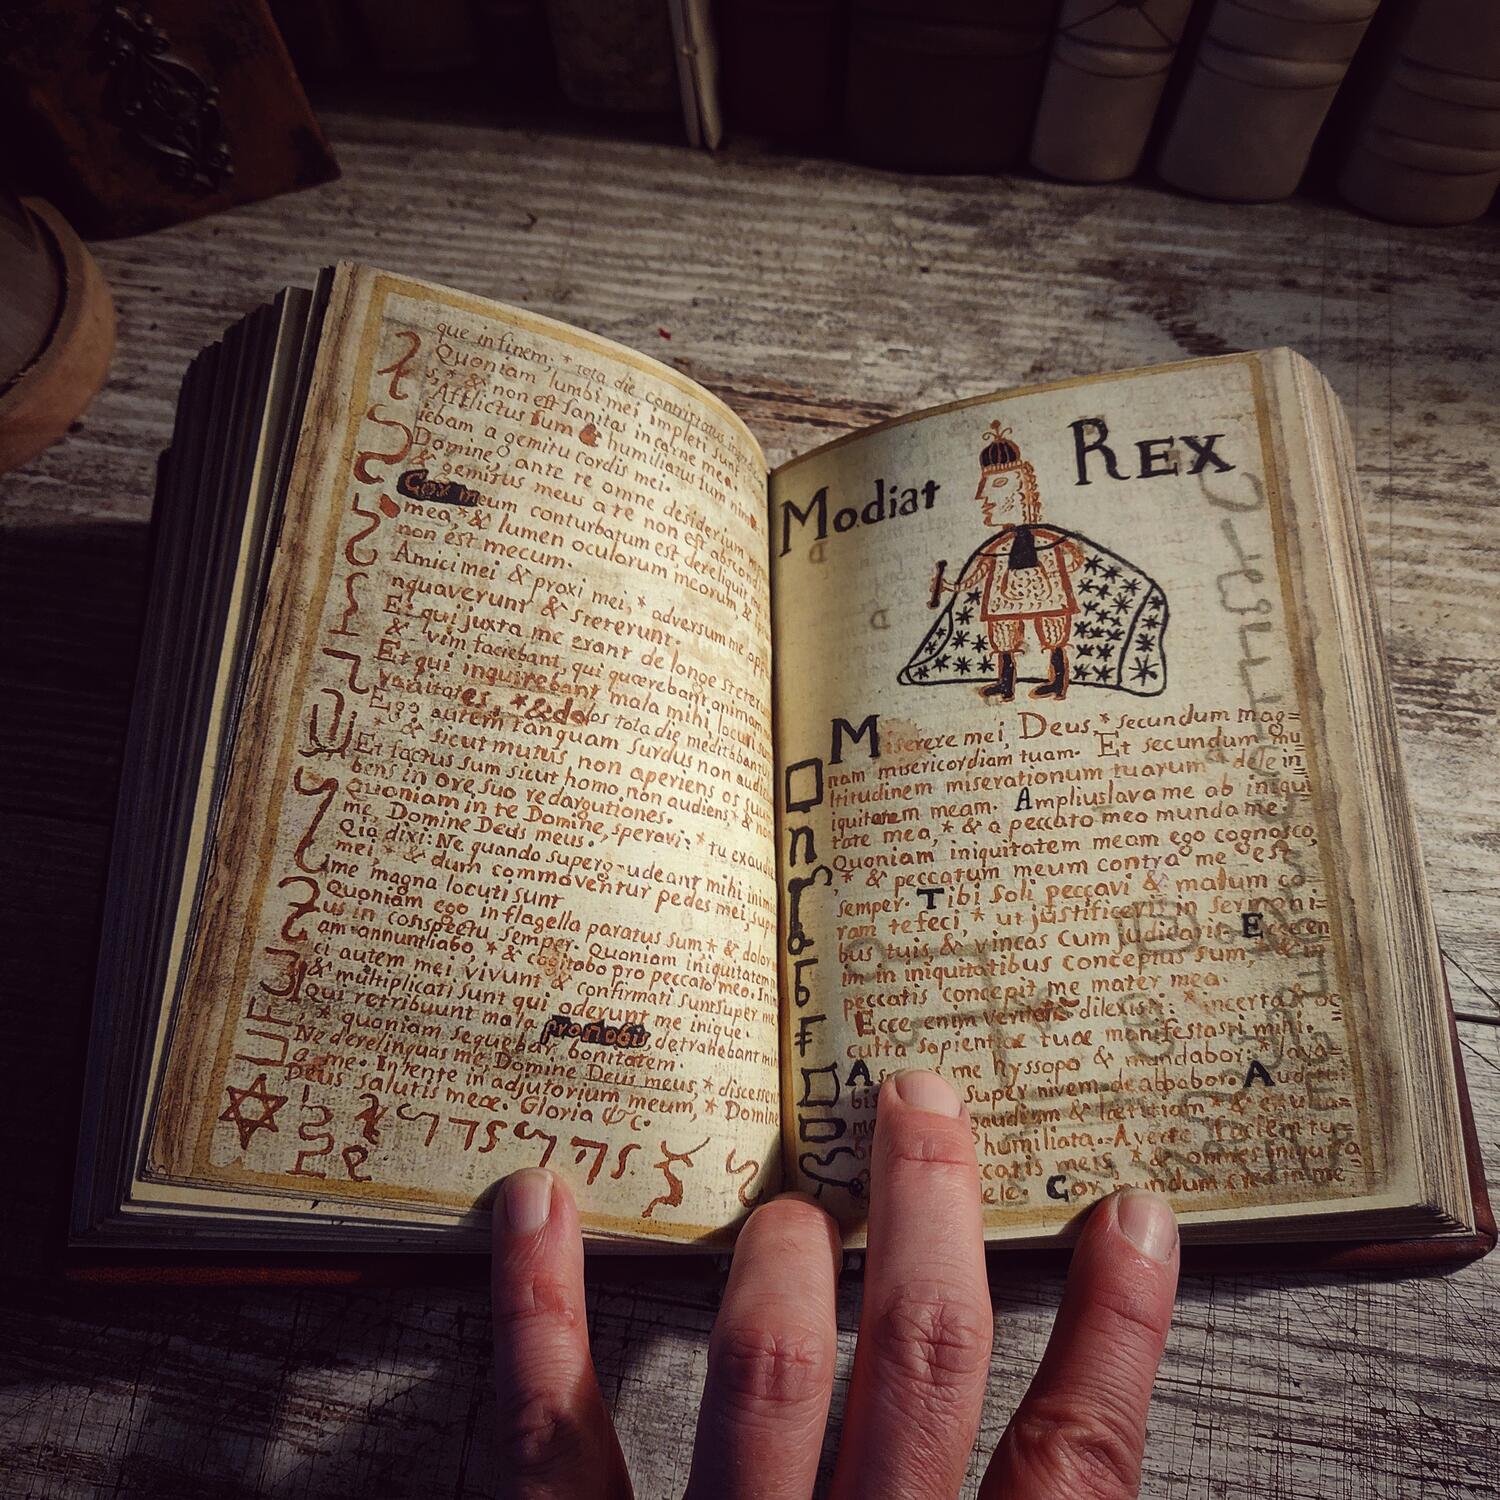 que in finem; * tota die contristatus
Quoniam lumbi mei impleti sunt
s, * & non est sanitas in carne mea.
Afflictus sum & humiliatus sum nimi
iebam a gemitu cordis mei.
Domine, ante te omne desiderium
& gemitus meus a te non est abscond
Cor meum conturbatum est, dereliquit me
mea, & lumen oculorum meorum &
non est mecum.
Amici mei & proxi mei, * adversum me app
nquaverunt & steterunt.
Et qui juxta me erant de longe steter
& vim faciebant, qui quærebant animam
Et qui inquirebant mala mihi, locuti sun
vanitates, * & dolos tota die meditabant
Ego autem tanquam surdus non audie
* & sicut mutus non aperiens os suum
Et factus sum sicut homo non audiens * & non
bens in ore suo redargutiones.
Quoniam in te Domine, speravi: * tu exaudi
me, Domine Deus meus.
Qia dixi: Ne quando supergaudeant mihi inimi
mei * & dum commoventur pedes mei, super
ime magna locuti sunt
Quoniam ego in flagella paratus sum * & dolor
us in conspectu semper. Quoniam iniquitatem
am annuntiabo, * & cogitabo pro peccato meo. Inimi
ci autem mei vivunt & confirmati sunt super me
& multiplicati sunt qui oderunt me inique.
Qui retribuunt mala detrahebant mi
, * quoniam sequebar bonitatem.
Ne derelinquas me, Domine Deus meus, * discesser
a me. Intente in adjutorium meum, * Domine
Deus salutis meæ. Gloria &c.
Modiat REX
Miserere mei, Deus * secundum mag=
nam misericordiam tuam. Et secundum mu
ltitudinem miserationum tuarum dele in=
iquitatem meam. Amplius lava me ab iniqui
tate mea, * & a peccato meo munda me.
Quoniam iniquitatem meam ego cognosco,
* & peccatum meum contra me est
semper. Tibi soli peccavi & malum co
ram te feci, * ut justificeris in sermoni=
bus tuis, & vincas cum judicaris. Ecce en
im in iniquitatibus conceptus sum, * & in
peccatis concepit me mater mea.
Ecce enim veritatē dilexisti: * incerta & oc
culta sapientiæ tuæ manifestasti mihi.
me hyssopo & mundabor: * lava=
bis super nivem dealbabor. Audi
gaudium & lætitiam * & exulta=
humiliata. Averte faciem tu=
peccatis meis, * & omnes iniquita
dele. Cor mundum crea in me